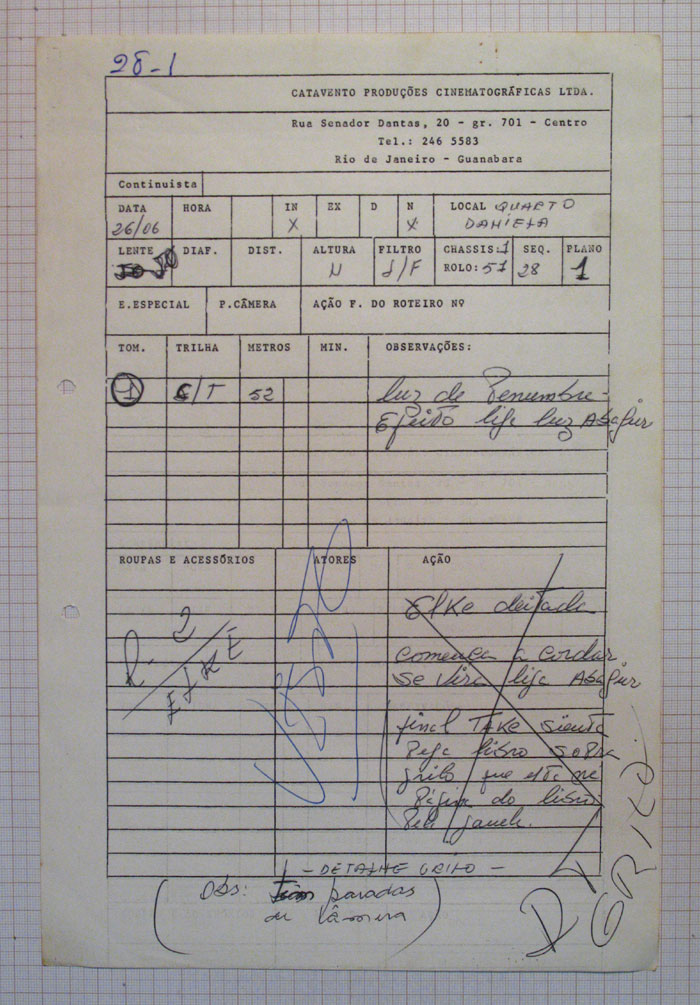 28-1
CATAVENTO PRODUÇÕES CINEMATOGRÁFICAS LTDA.
Rua Senador Dantas, 20 - gr. 701 - Centro
Tel.: 246 5583
Rio de Janeiro - Guanabara
Continuista
DATA HORA IN EX D N LOCAL QUARTO
26/06 X X DANIELA
LENTE DIAF. DIST. ALTURA FILTRO CHASSIS: 1 SEQ. PLANO
50 N S/F ROLO: 57 28 1
E.ESPECIAL P.CÂMERA AÇÃO F. DO ROTEIRO Nº
TOM. TRILHA METROS MIN. OBSERVAÇÕES:
1 S/T 52 luz de Penumbra-
Efeito liga luz Abajur
ROUPAS E ACESSÓRIOS ATORES AÇÃO
R. 2
ELKE
Elke deitada
começa a cordar
se vira liga Abajur
final Take sienta
Pega libro sopra
grilo que esta na
Página do libro
Pela janela.
- DETALHE GRILO -
(Obs: paradas
de câmera)
GRILO.